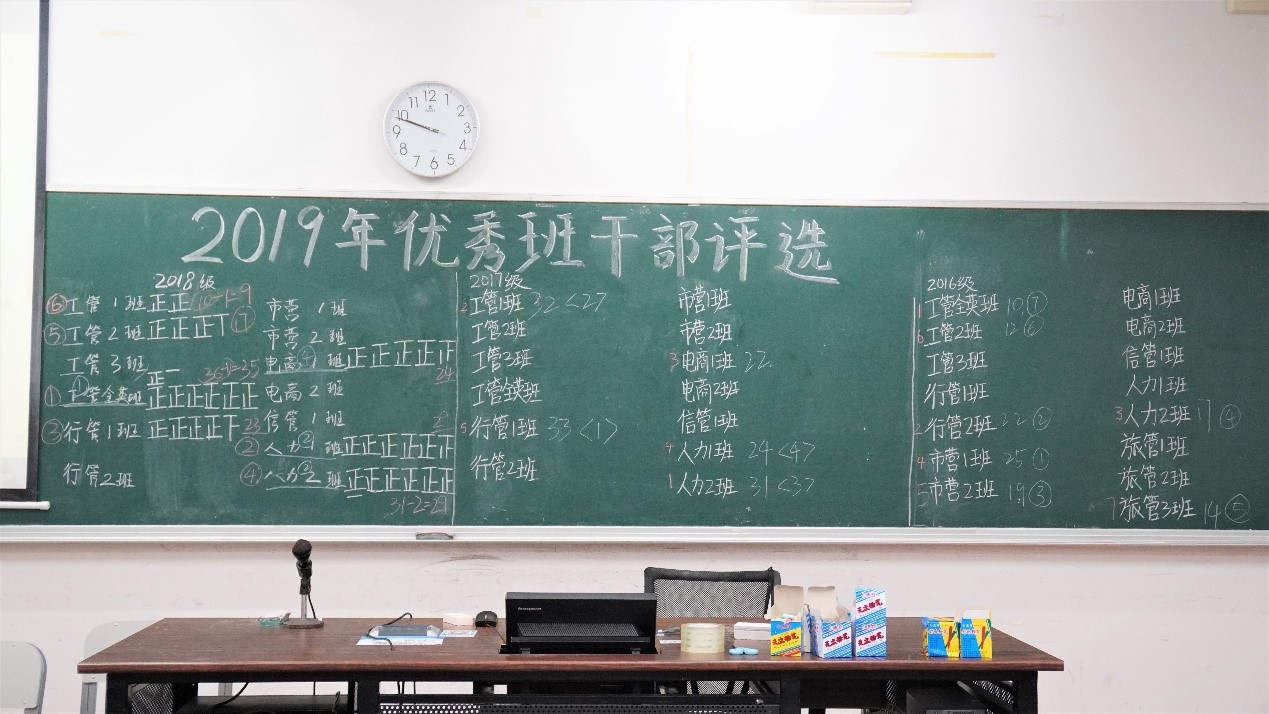 2019年优秀班干部评选
2018级
⑥工管1班 正正 10-1=9
⑤工管2班 正正正丅 ⑦
工管3班 正一
36-1=35
①工管全英班 正正正正正正
③行管1班 正正正正下 23
行管2班
市营1班
市营2班
电商1班 ④ 正正正正正
24
电商2班
信管1班
②人力1班 正正正正正
④人力2班 正正正正正正
31-2=29
2017级
2工管1班 32<2>
工管2班
工管3班
工管全英班
5行管1班 33<1>
行管2班
市营1班
市营2班
3电商1班 22
电商2班
信管1班
4人力1班 24<4>
1人力2班 31<3>
2016级
1工管全英班 10 ⑦
6工管2班 12 ⑥
工管3班
行管1班
2行管2班 22 ②
4市营1班 25 ①
5市营2班 19 ③
电商1班
电商2班
信管1班
人力1班
3人力2班 17 ④
旅管1班
旅管2班
7旅管3班 14 ⑤
12
1
2
3
4
5
6
7
8
9
10
11